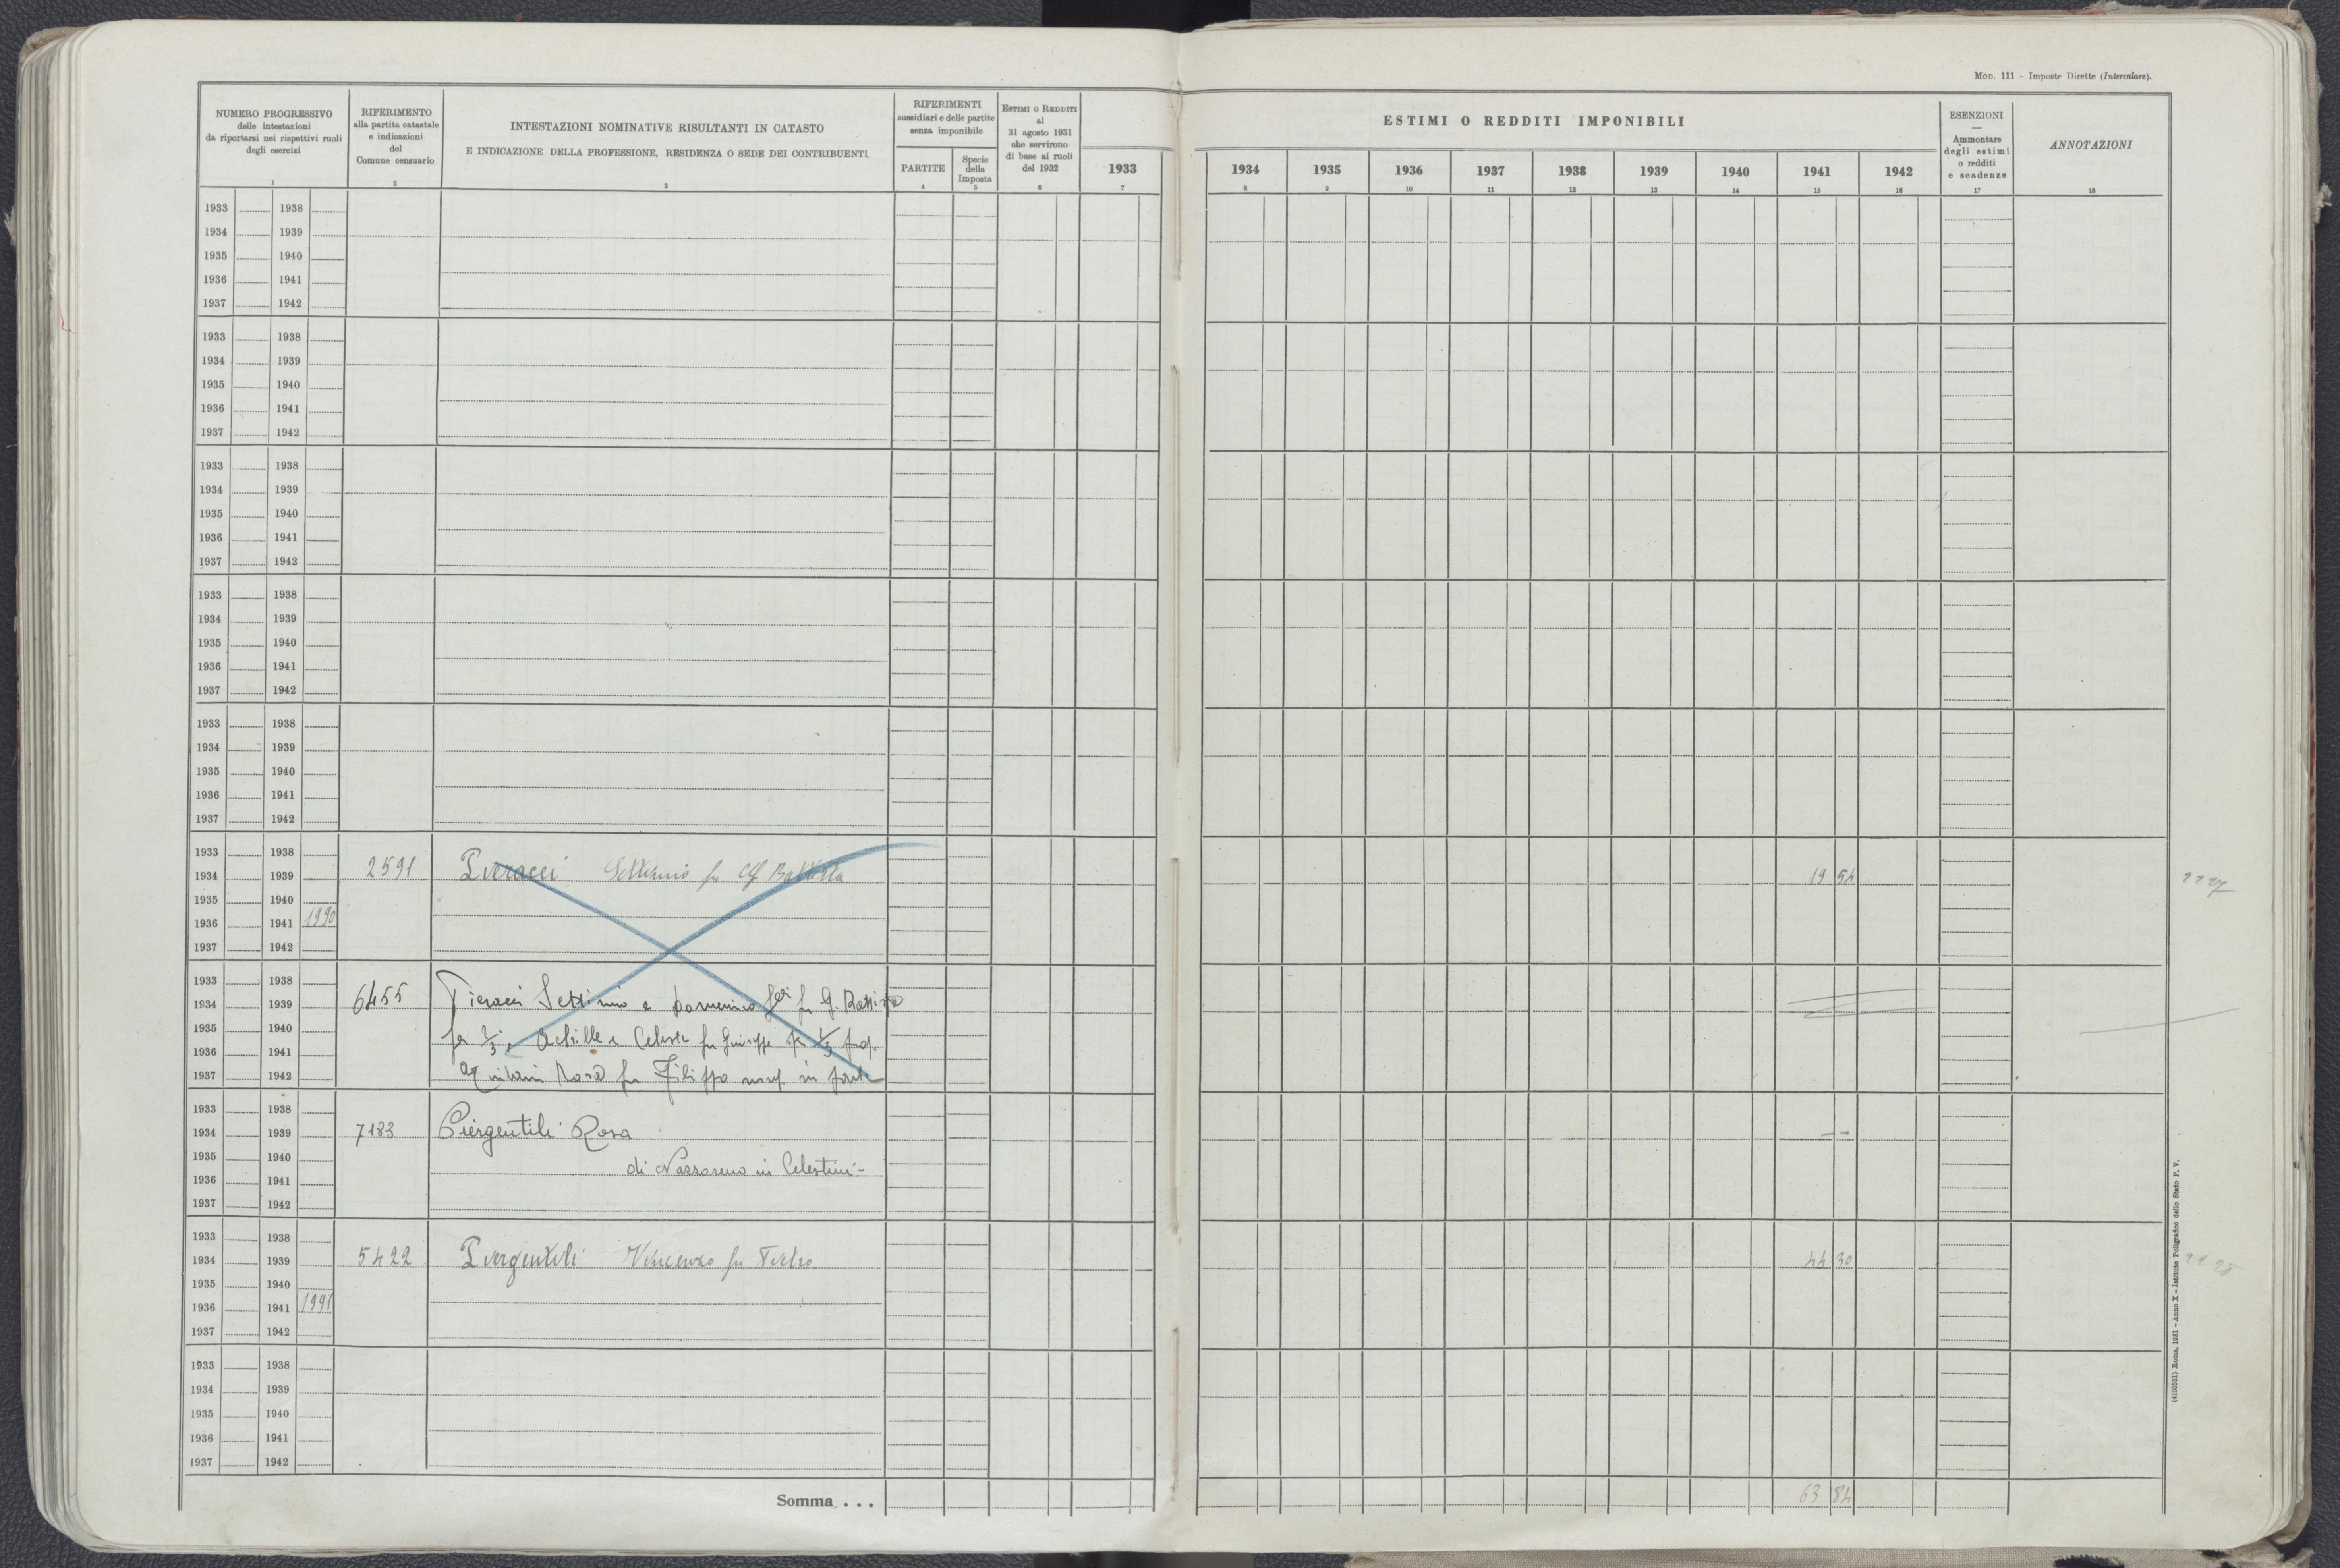 MOD. 111 – Imposte Dirette (Intercalare).
NUMERO PROGRESSIVO
delle intestazioni
da riportarsi nei rispettivi ruoli
degli esercizi
1
RIFERIMENTO
alla partita catastale
e indicazioni
del
Comune censuario
2
INTESTAZIONI NOMINATIVE RISULTANTI IN CATASTO
E INDICAZIONE DELLA PROFESSIONE, RESIDENZA O SEDE DEI CONTRIBUENTI
3
RIFERIMENTI
sussidiari e delle partite
senza imponibile
PARTITE
4
Specie
della
Imposta
5
ESTIMI O REDDITI
al
31 agosto 1931
che servirono
di base ai ruoli
del 1932
6
ESTIMI O REDDITI IMPONIBILI
1933 1934 1935 1936 1937 1938 1939 1940 1941 1942
7 8 9 10 11 12 13 14 15 16
ESENZIONI
—
Ammontare
degli estimi
o redditi
e scadenze
17
ANNOTAZIONI
18
1933 1938
1934 1939
1935 1940
1936 1941
1937 1942
1933 1938
1934 1939
1935 1940
1936 1941
1937 1942
1933 1938
1934 1939
1935 1940
1936 1941
1937 1942
1933 1938
1934 1939
1935 1940
1936 1941
1937 1942
1933 1938
1934 1939
1935 1940
1936 1941
1937 1942
1933 1938
1934 1939 2591 Pieracci Settimio fu Battista 19 54 2227
1935 1940
1936 1941 1990
1937 1942
1933 1938
1934 1939 6455 Pieracci Settimio e Domenico fu G. Battista
1935 1940
1936 1941 per 2/3, Achille e Celeste fu Giuseppe per 1/3 prop.
1937 1942 Rosa fu Filippo usuf in parte
1933 1938
1934 1939 7183 Piergentili Rosa — —
1935 1940 di Nazzareno in Celestini -
1936 1941
1937 1942
1933 1938
1934 1939 5422 Piergentili Vincenzo fu Pietro 44 30 2228
1935 1940
1936 1941 1991
1937 1942
1933 1938
1934 1939
1935 1940
1936 1941
1937 1942
Somma . . . 63 84
(4103531) Roma, 1931 – Anno X – Istituto Poligrafico dello Stato P. V.